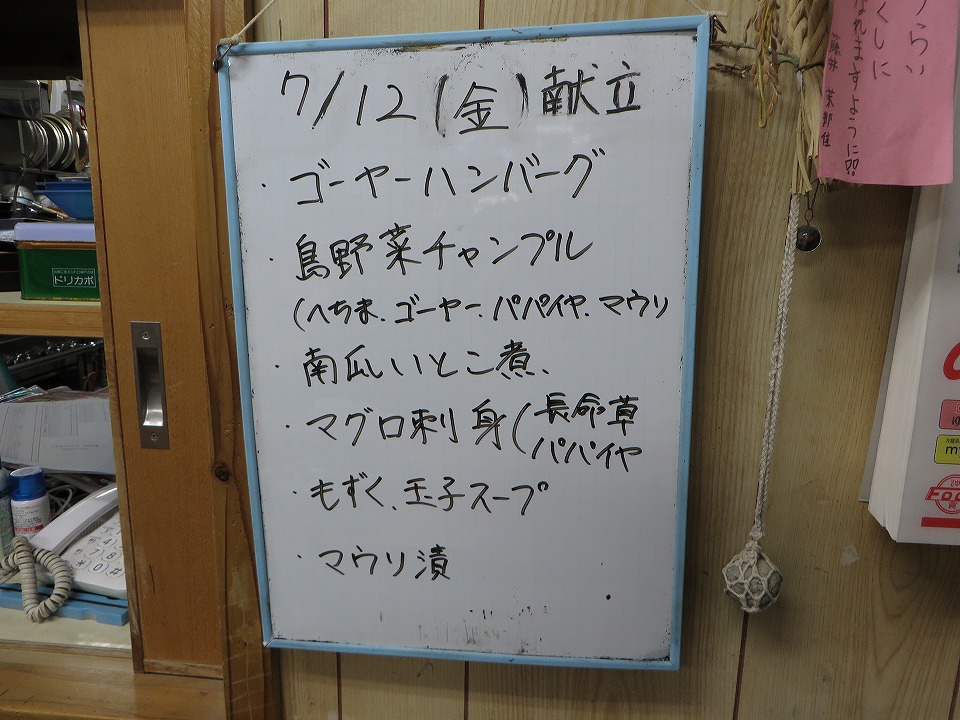 7/12(金)献立
・ゴーヤーハンバーグ
・島野菜チャンプル
(へちま、ゴーヤー、パパイヤ、マウリ
・南瓜いとこ煮、
・マグロ刺身(長命草
パパイヤ
・もずく、玉子スープ
・マウリ漬
ドリカポ
うらい
くしに
なれますように